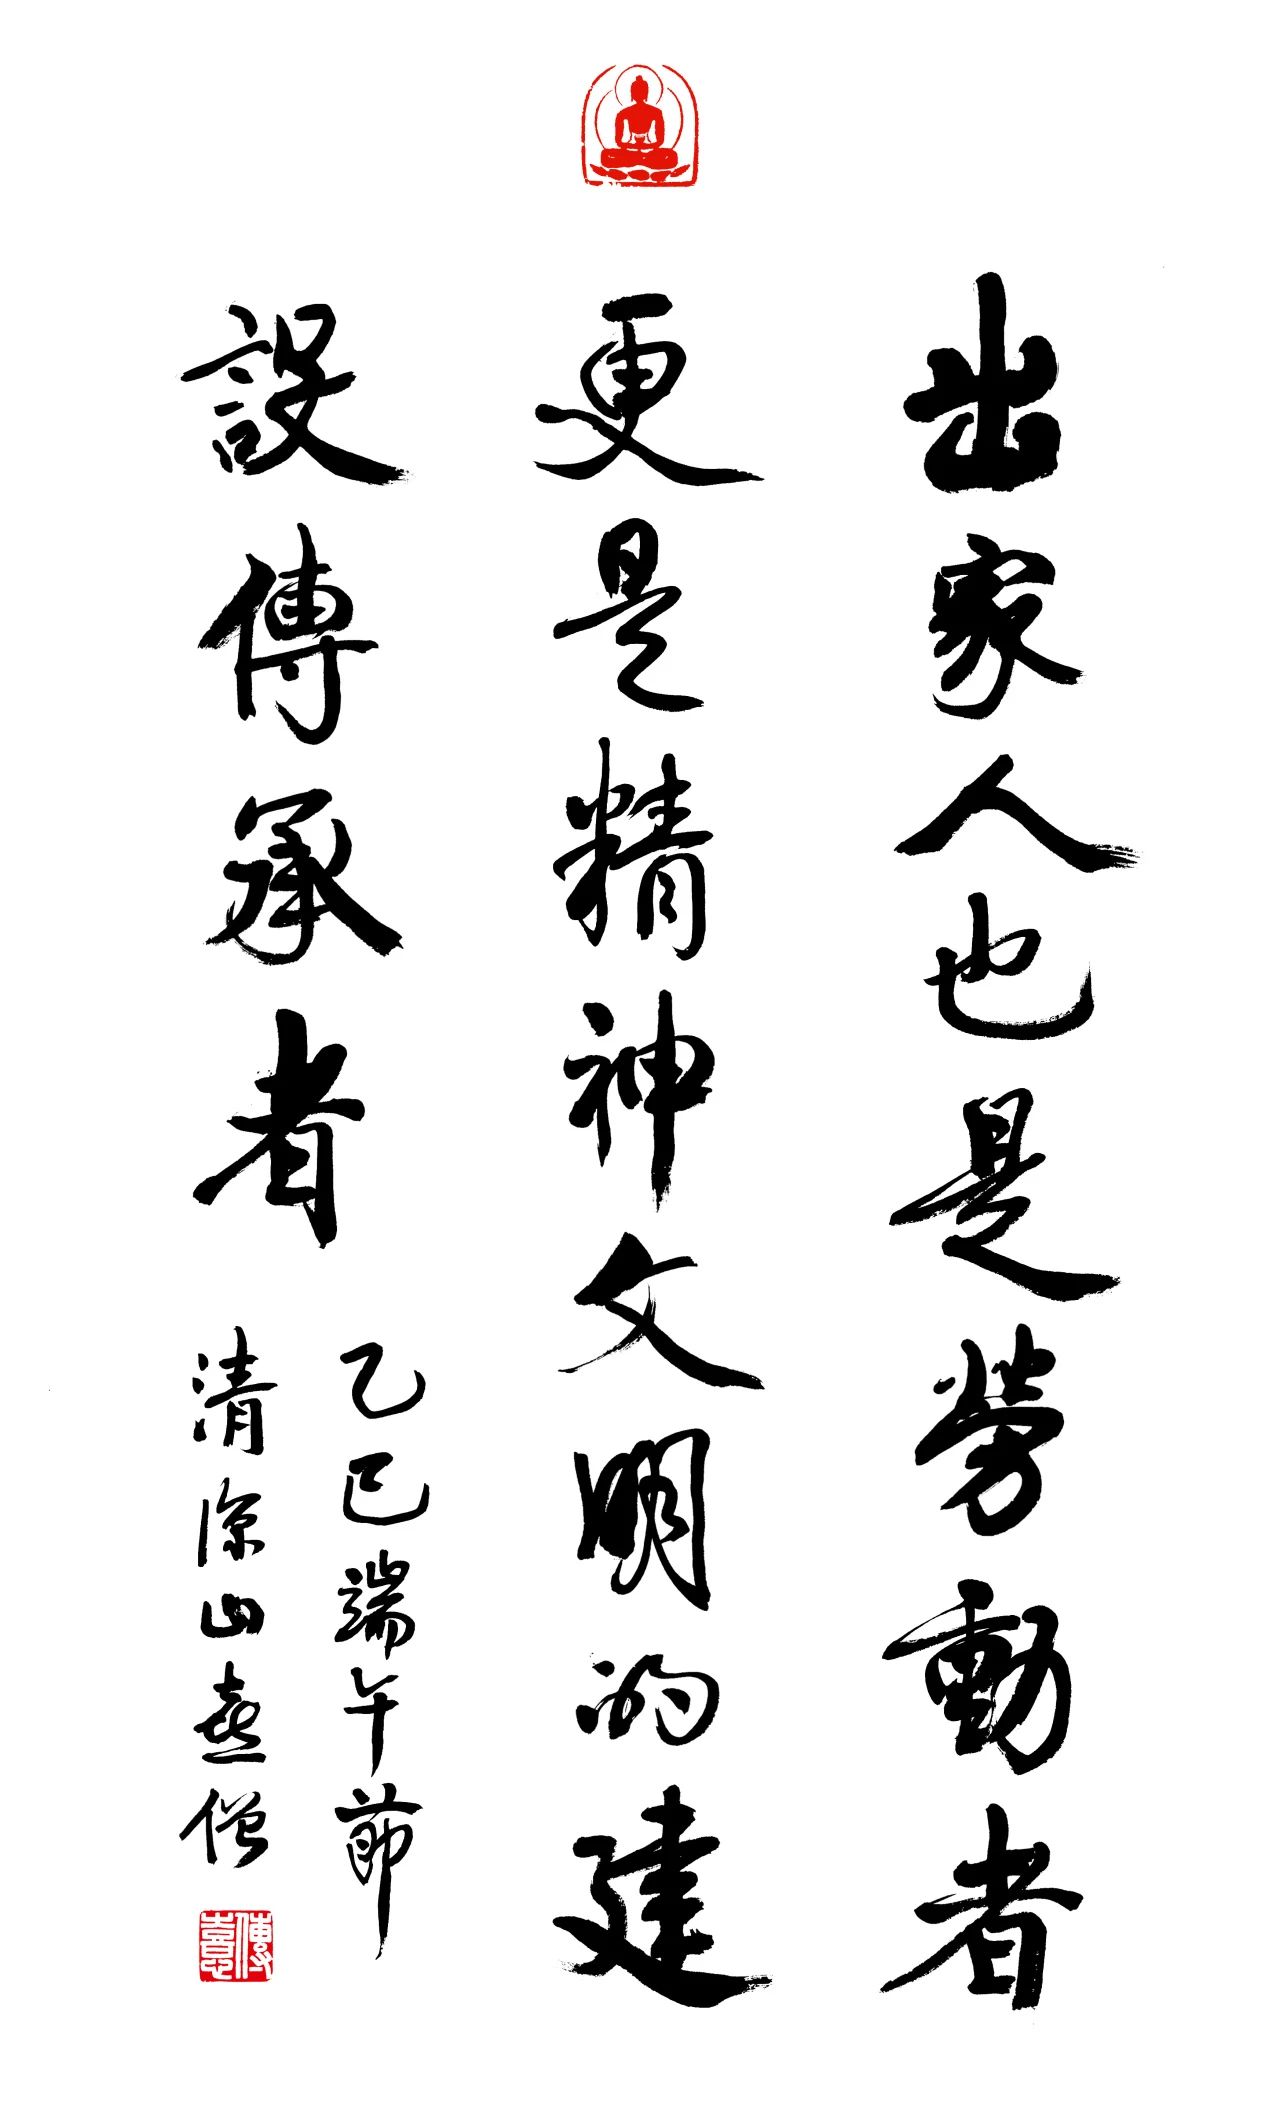 出家人也是勞動者
更是精神文明的建
設傳承者
乙巳端午節
清凉山憙僧
傳憙